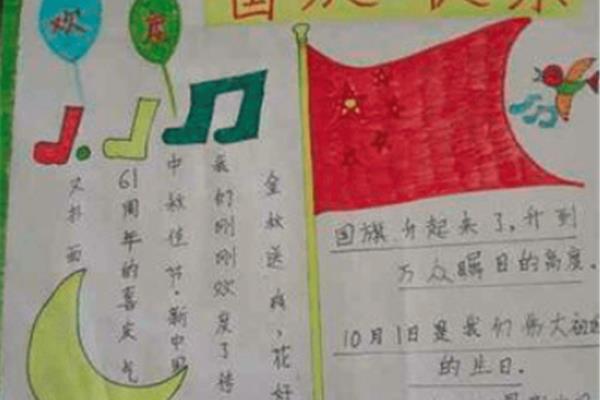 国庆快乐
欢度
金秋送爽，花好
我们刚刚欢度了传
中秋佳节，新中国
61周年的喜庆气
又扑面
国旗升起来了，升到
万众瞩目的高度。
10月1日是我们伟大祖
的生日.